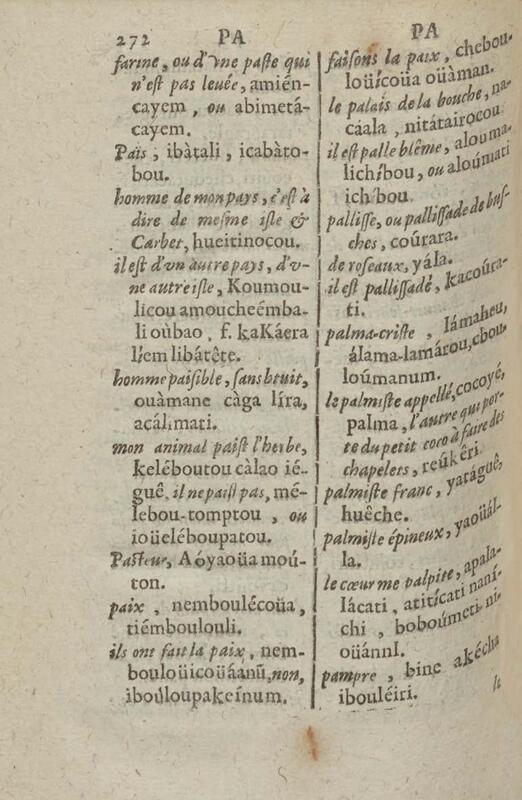 272 PA
farine, ou d'vne paste qui
n'est pas leuée, amién-
cayem, ou abimetá-
cayem.
Païs, ibàtali, icabàto-
bou.
homme de mon pays, c'est à
dire de mesme isle &
Carbet, hueitinocou.
il est d'vn autre pays, d'v-
ne autre isle, Koumou-
licou amoucheémba-
li oùbao, f. kaKáera
l'iem libátête.
homme paisible, sans bruit,
ouàmane càga líra,
acálimati.
mon animal paist l'herbe,
keléboutou càlao ié-
guê, il ne paist pas, mé-
lebou-tomptou, ou
ioüeléboupatou.
Pasteur, Aóyaoüa moú-
ton.
paix, nemboulécoüa,
tiémboulouli.
ils ont fait la paix, nem-
bouloüicoüáanū, non,
iboúloupakeínum.
PA
faisons la paix, chebou-
loüícoüa oüàman.
le palais de la bouche, na-
cáala, nitátairocou.
il est palle blême, alouma-
lichíbou, ou aloúmati
ichíbou
pallisse, ou pallissade de bus-
ches, coúrara.
de roseaux, yála.
il est pallissadé, kacoúra-
ti.
palma-criste, lámaheu,
álama-lamárou, chou-
loúmanum.
le palmiste appellé, cocoyé,
palma, l'autre qui por-
te du petit coco à faire des
chapelets, reúkêri.
palmiste franc, yatáguê,
huêche.
palmiste épineux, yaoüál-
la.
le cœur me palpite, apala-
lácati, atitícati naní-
chi, boboúmeti ni-
oüánni.
pampre, bine akécha
ibouléiri.